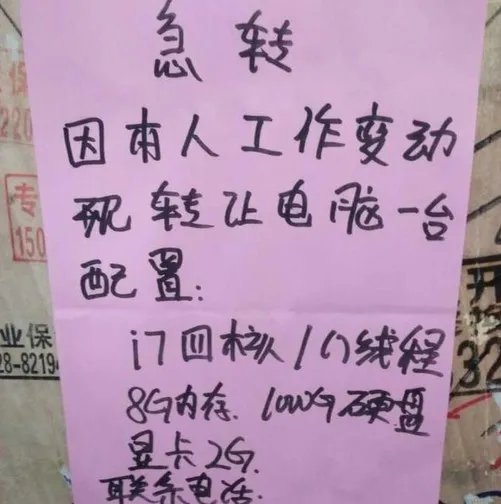 急转
因本人工作变动
现转让电脑一台
配置:
i7四核/八线程
8G内存. 1000G硬盘
显卡2G.
联系电话:
保
220
专
150
业保
28-8219
开
32